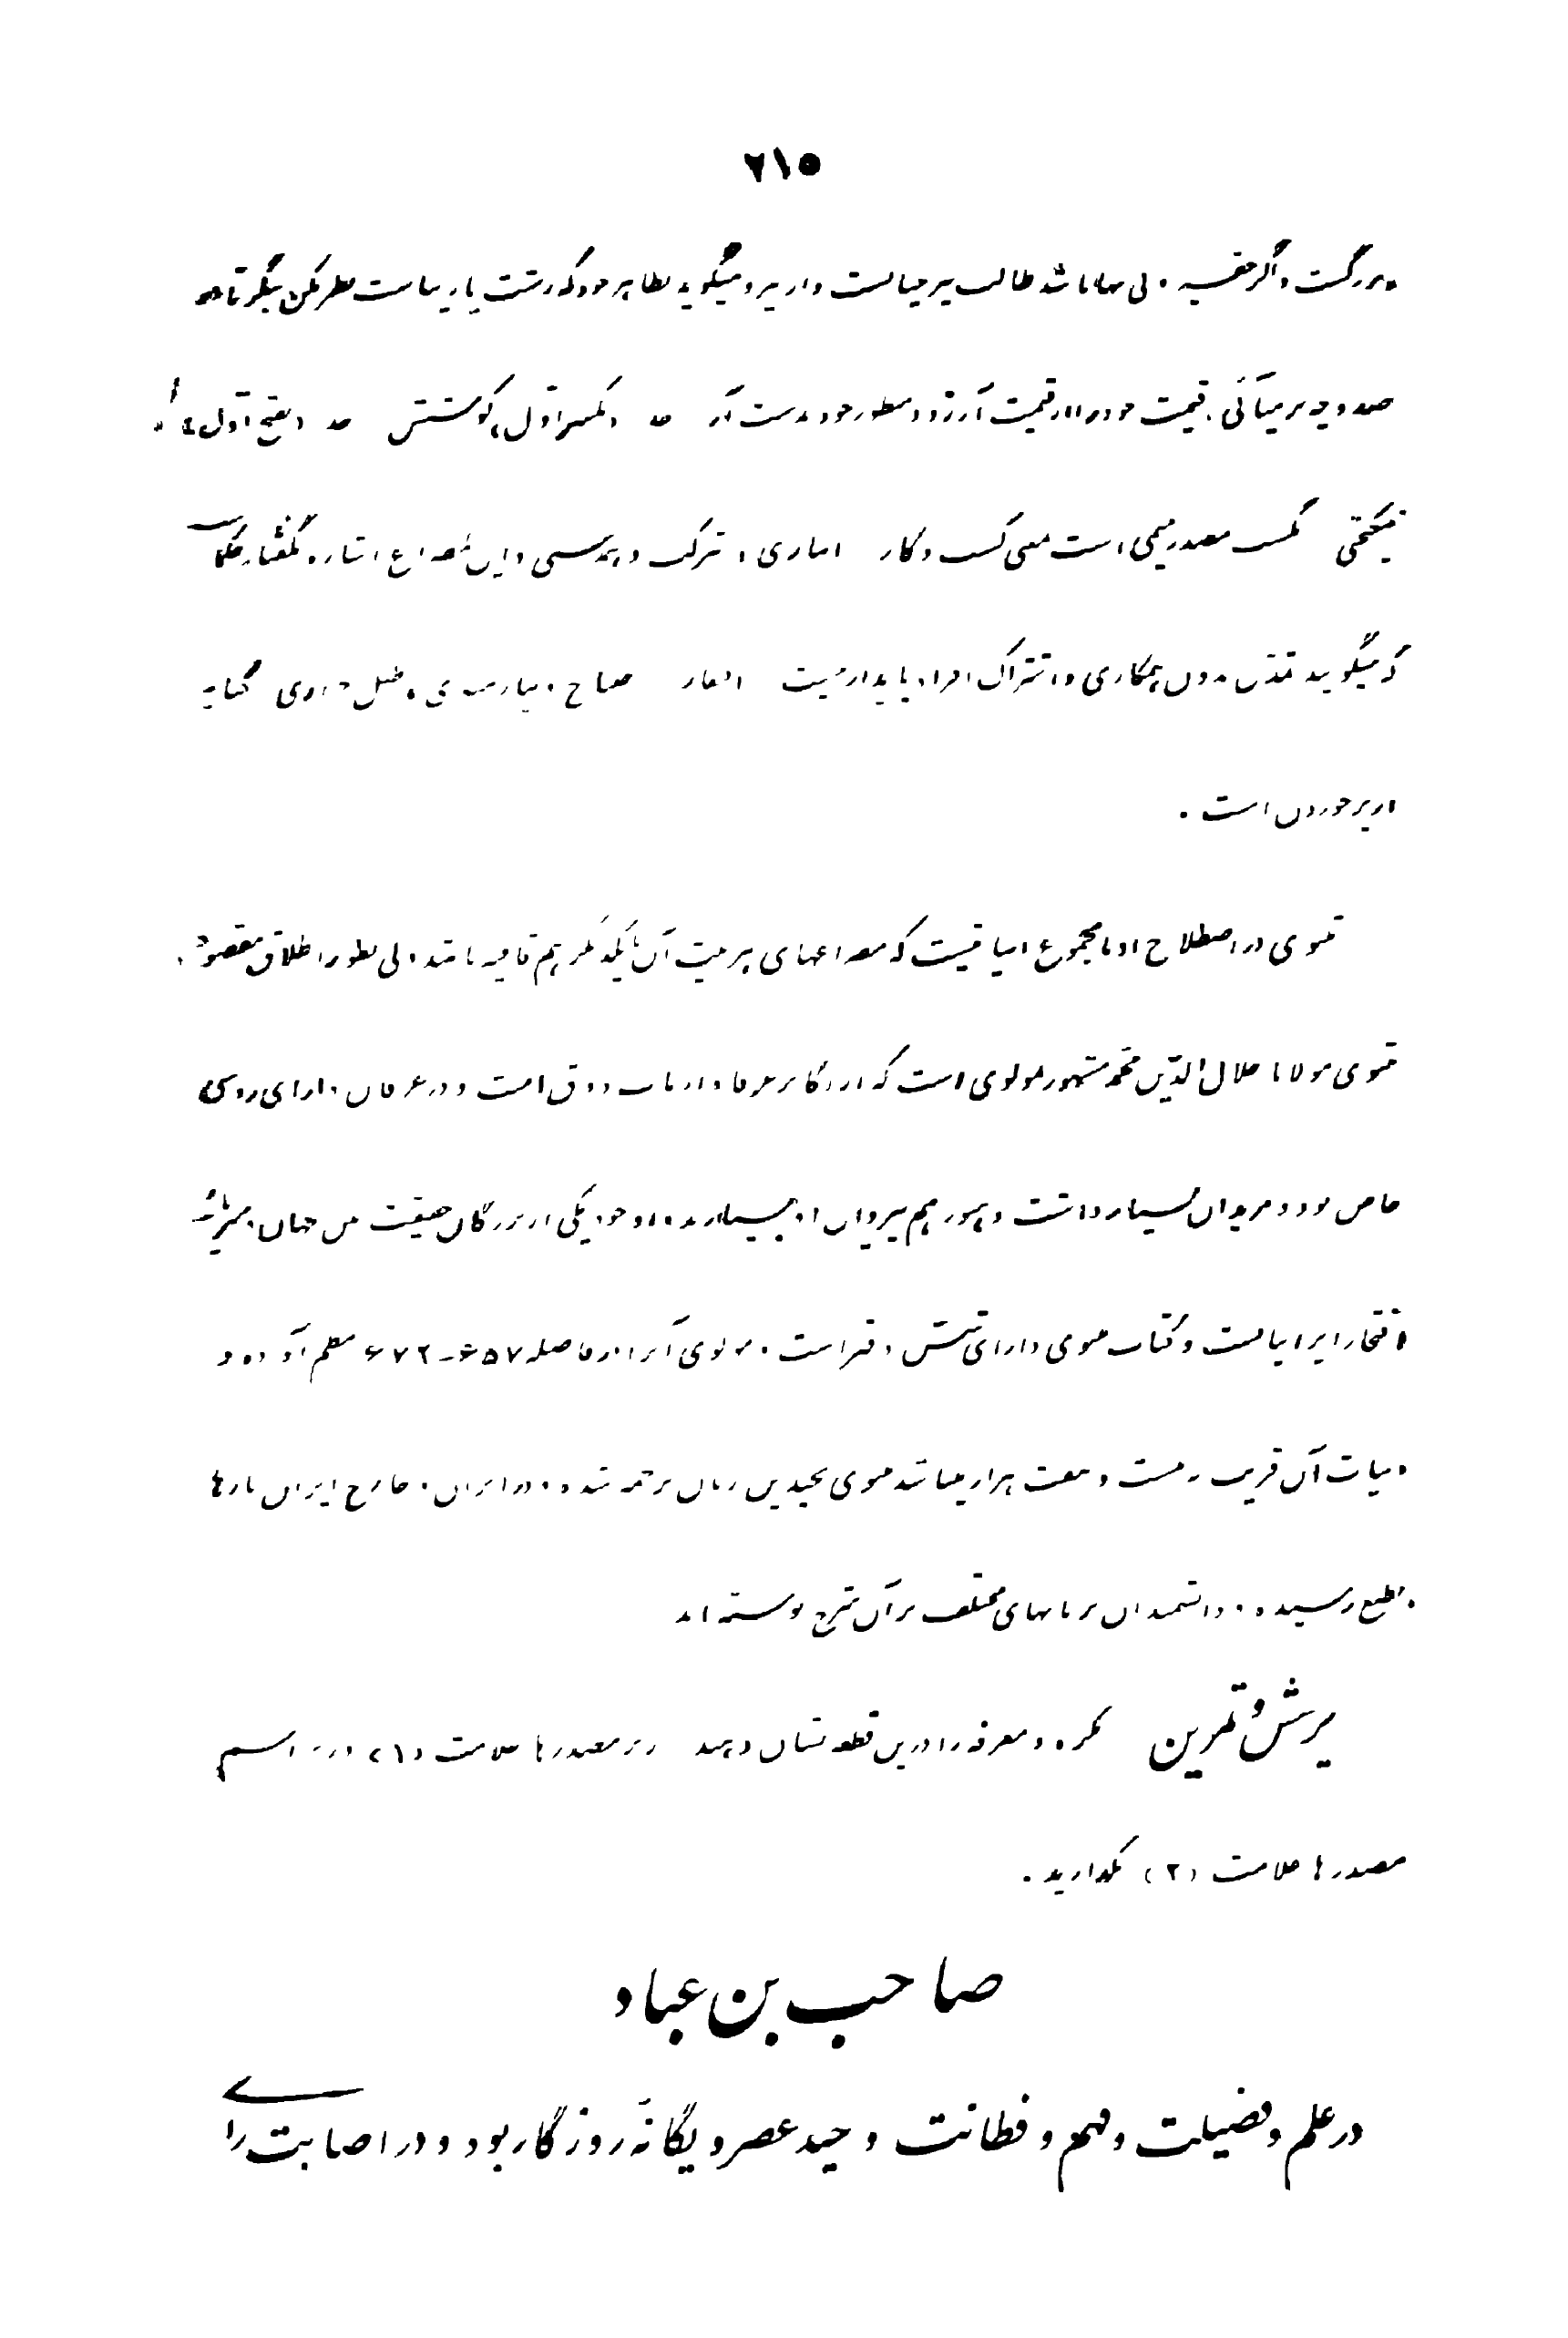 ۲۱۵
بزرگست و اگر حقیر ولی همانا شد طالب بیرحیالست و ازیرو میگوید بظاهر خود که زشت یا زیباست نظر مکن بنگر تا چه
قیمت خود را از قیمت آرزو و مطلوب خود بدست آر جد بکسر اول، کوشش جد بفتح اول،
نیکبختی مکسب مصدر میمی است بمعنی کسب و کار انبازی، شرکت و همدستی و این مصراع اشاره بگفتار حکماست
که میگویند تمدن بدون همکاری و اشتراک افراد پایدار نیست افتقار احتیاج و نیازمندی، طبل خواری کنایه
از پرخوردن است.
مثنوی در اصطلاح ادبا مجموع ابیاتیست که مصراعهای هر بیت آن با یکدیگر هم قافیه باشد ولی بطور اطلاق مقصود از
مثنوی مولانا جلال الدین محمد مشهور بمولوی است که از اکابر عرفا و ارباب ذوق است و در عرفان دارای روشی
خاص بود و مریدان بسیار داشت و هنوز هم پیروان او بسیارند و او خود یکی از بزرگان حقیقت بین جهان و
افتخار ایرانیانست و کتاب مثنوی دارای شش دفتر است. مولوی آنرا در فاصله ۶۵۷ـ۶۷۲ بنظم آورده و
ابیات آن قریب بیست و هفت هزار میباشد مثنوی بچندین زبان ترجمه شده و در ایران و خارج ایران بارها
بطبع رسیده و دانشمندان بزبانهای مختلف بر آن شرح نوشته اند
پرسش و تمرین نکره و معرفه را درین قطعه نشان دهید زیر مصدرها علامت (۱) و زیر اسم
مصدرها علامت (۲) بگذارید.
صاحب بن عباد
در علم و فضیلت و فهم و فطانت وحید عصر و یگانهٔ روزگار بود و در اصابت رای